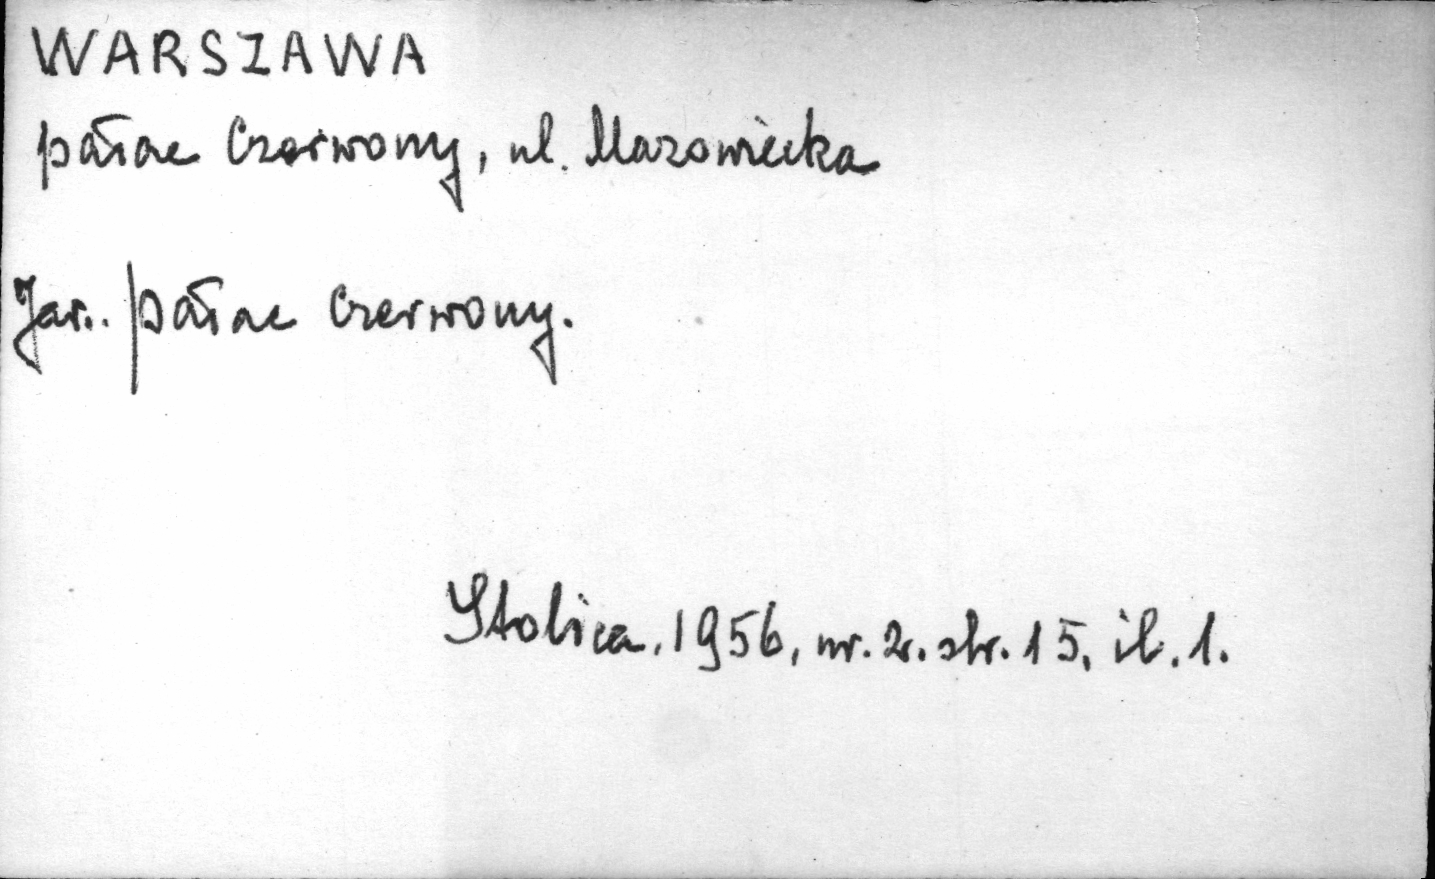 WARSZAWA
pałac Czerwony, ul. Mazowiecka
Jar. pałac Czerwony.
Stolica, 1956, nr. 2. str. 15, il. 1.